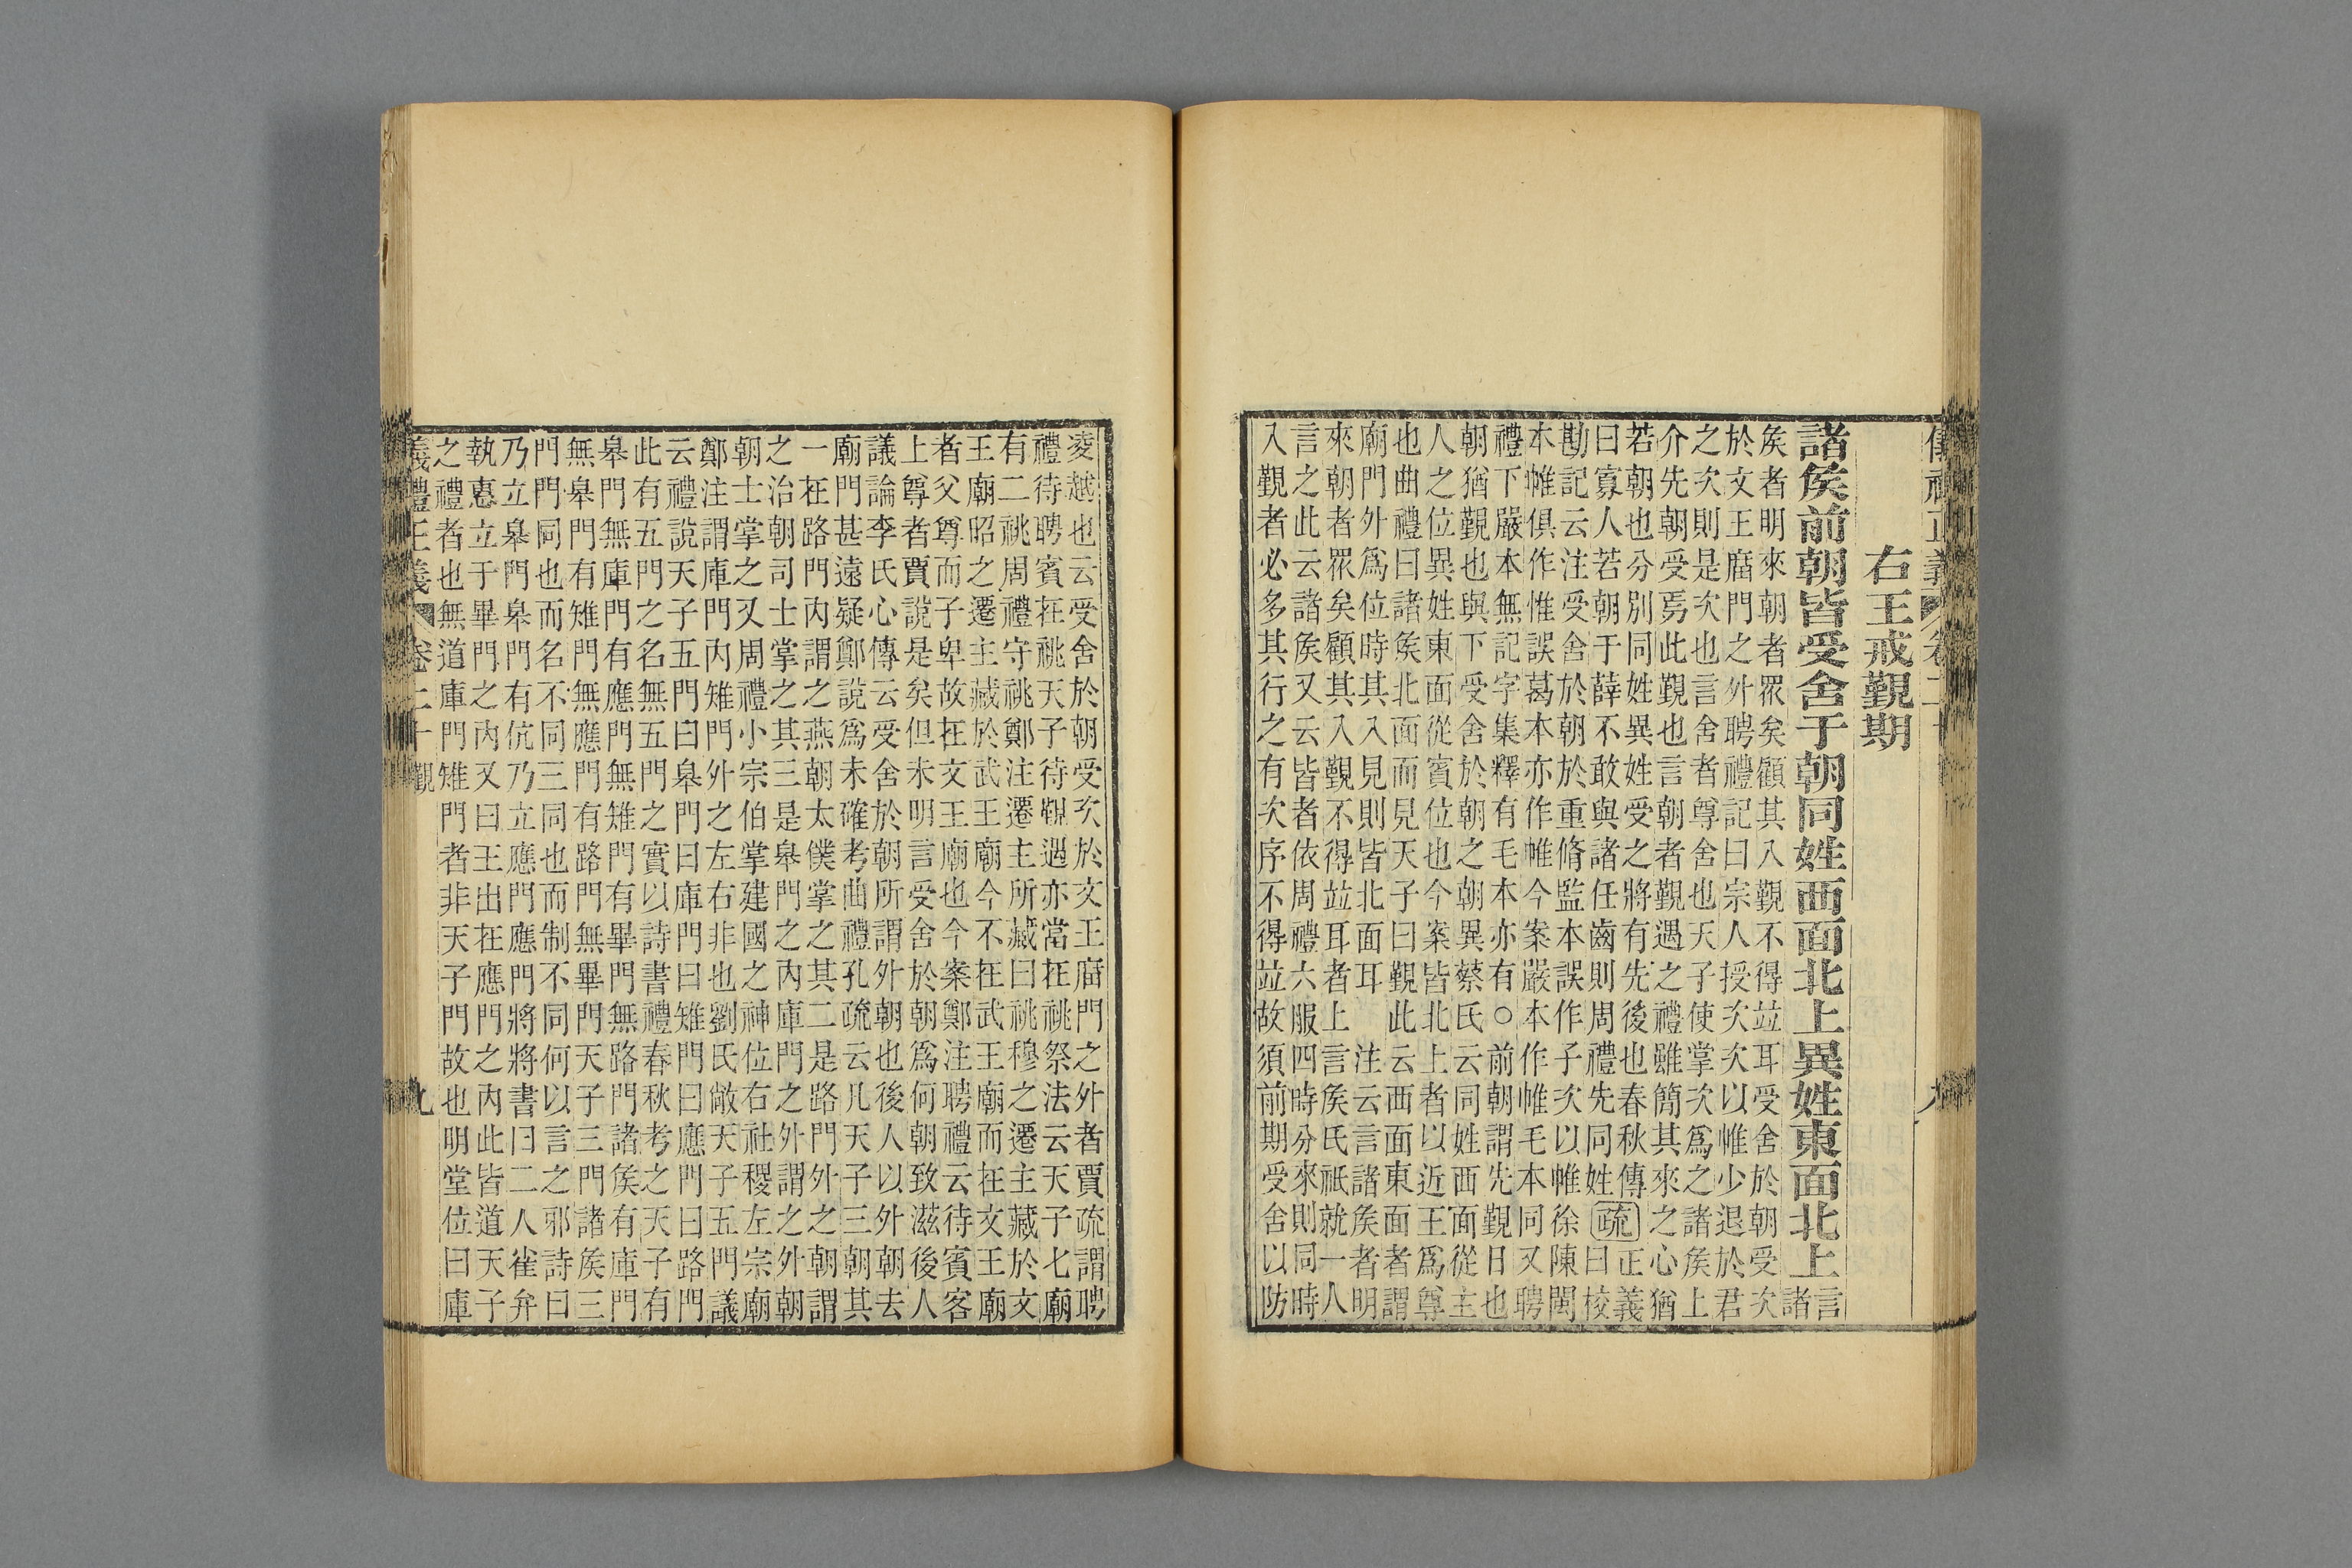 右王戒覲期
諸矦前朝皆受舍于朝同姓西面北上異姓東面北上言諸
矦者明來朝者眾矣顧其入覲不得竝耳受舍於朝受次
於文王廟門之外聘禮記曰宗人授次次以帷少退於君
之次則是次也言舍者尊舍也天子使掌次爲之諸矦上
介先朝受焉此覲也言朝者覲遇之禮雖簡其來之心猶
若朝也分別同姓異姓受之將有先後也春秋傳
曰寡人若朝于薛不敢與諸任齒則周禮先同姓疏正義曰校
勘記云注受舍於朝於重脩監本誤作子次以帷徐陳閩
本帷俱作惟誤葛本亦作帷今案嚴本作帷毛本同又聘
禮下嚴本無記字集釋有毛本亦有○前朝謂先覲日也
朝猶覲也與下受舍於朝之朝異蔡氏云同姓西面從主
人之位異姓東面從賓位也今案皆北上者以近王爲尊
也曲禮曰諸矦北面而見天子曰覲此云西面東面者謂
廟門外爲位時其入見則皆北面耳 注云言諸矦者明
來朝者眾矣顧其入覲不得竝耳者上言矦氏祇就一人
言之此云諸矦又云皆者依周禮六服四時分來則同時
入覲者必多其行之有次序不得竝故須前期受舍以防
凌越也云受舍於朝受次於文王廟門之外者賈疏謂聘
禮待聘賓在祧天子待覲遇亦當在祧祭法云天子七廟
有二祧周禮守祧鄭注遷主所藏曰祧穆之遷主藏於文
王廟昭之遷主藏於武王廟今不在武王廟而在文王廟
者父尊而子卑故在文王廟也今案鄭注聘禮云待賓客
上尊者賈說是矣但未明言受舍於朝爲何朝致滋後人
議論李氏心傳云受舍於朝所謂外朝也後人以外朝去
廟門甚遠疑鄭說爲未確考曲禮孔疏云凡天子三朝其
一在路門內謂之燕朝太僕掌之其二是路門外之朝謂
之治朝司士掌之其三是皋門之內庫門之外謂之外朝
朝士掌之又周禮小宗伯掌建國之神位右社稷左宗廟
鄭注謂庫門內雉門外之左右非也劉氏敞天子五門議
云禮說天子五門曰皋門曰庫門曰雉門曰應門曰路門
此有五門之名無五門之實以詩書禮春秋考之天子有
皋門無庫門有應門無雉門有畢門無路門諸矦有庫門
無皋門有雉門無應門有路門無畢門天子三門諸矦三
門門同也而名不同三同也而制不同何以言之邪詩曰
乃立皋門皋門有伉乃立應門應門將將書曰二人雀弁
執惠立于畢門之內又曰王出在應門之內此皆道天子
之禮者也無道庫門雉門者非天子門故也明堂位曰庫